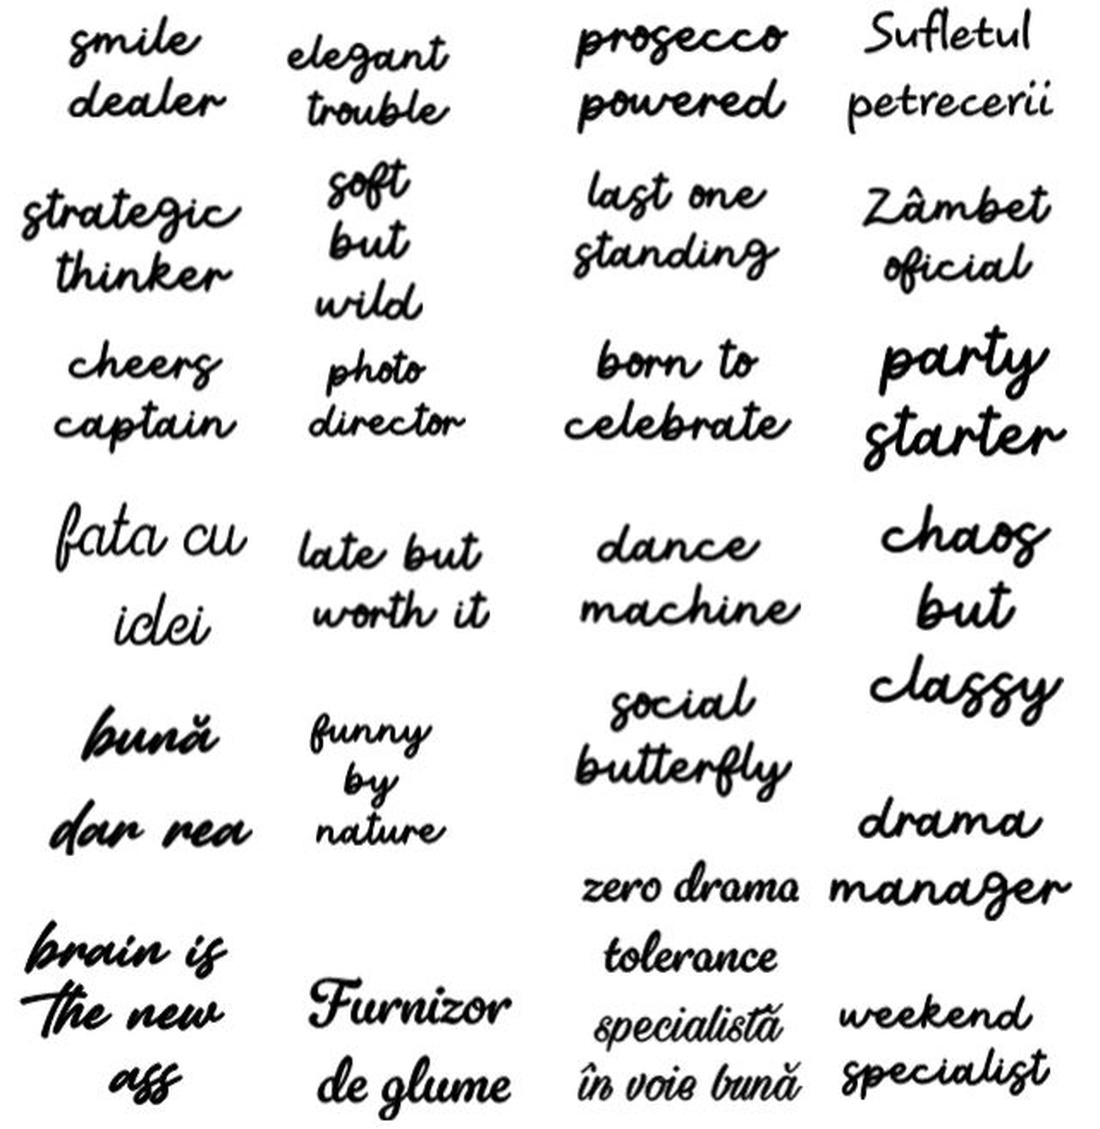 smile
dealer
strategic
thinker
cheers
captain
fata cu
idei
bună
dar rea
brain is
the new
ass
elegant
trouble
soft
but
wild
photo
director
late but
worth it
funny
by
nature
Furnizor
de glume
prosecco
powered
last one
standing
born to
celebrate
dance
machine
social
butterfly
zero drama
tolerance
specialistă
în voie bună
Sufletul
petrecerii
Zâmbet
oficial
party
starter
chaos
but
classy
drama
manager
weekend
specialist